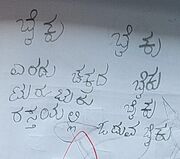 ಬೈಕು ಬೈಕು
ಎರಡು ಚಕ್ರದ ಬೈಕು
ಟುರು ಬುರು ಬೈಕು
ರಸ್ತೆಯಲ್ಲಿ ಓಡುವ ಬೈಕು